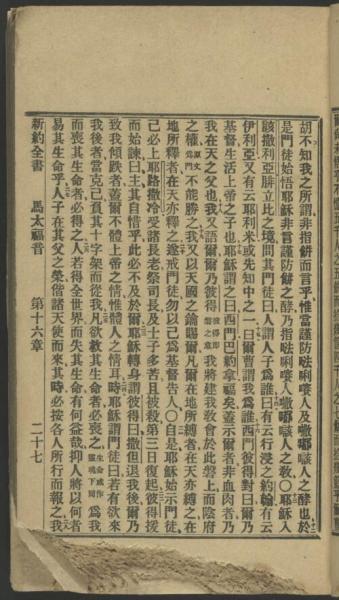 胡不知我之所謂非指餅而言乎惟當謹防唎人及嘟人之酵也於
是門徒始悟耶穌非言謹防餅之酵乃指唎人嘟人之敎〇耶穌入
該撒利亞腓立比之境問其門徒曰人謂人子爲誰曰有云行浸之約翰有云
伊利亞又有云耶利米或先知中之一曰爾曹謂我爲誰西門彼得對曰爾乃
基督生活上帝之子也耶穌謂之曰西門巴約拿福矣蓋示爾者非血肉者乃
我在天之父也我又語爾爾乃彼得彼得即磐之意我將建我敎會於此磐上而陰府
之權原文爲門不能勝之我又以天國之鑰賜爾凡爾在地所縛者在天亦縛之在
地所釋者在天亦釋之遂戒門徒勿以己爲基督告人〇自是耶穌始示門徒
己必上耶路撒冷受諸長老祭司長及士子多苦且被殺第三日復起彼得援
而始諫曰主其自惜乎此必不及於爾耶穌轉身謂彼得曰撒但退我後爾乃
致我傾跌者蓋爾不體上帝之情惟體人之情耳時耶穌謂門徒曰若有欲來
我後者當克己負其十字架而從我凡欲救其生命者必喪之生命或作靈魂下同爲我
而喪其生命者必得之人若得全世界而失其生命有何益哉抑人將以何者
易其生命乎人子在其父之榮偕諸天使而來其時必按各人所行而報之我
新約全書 馬太福音 第十六章 二十七